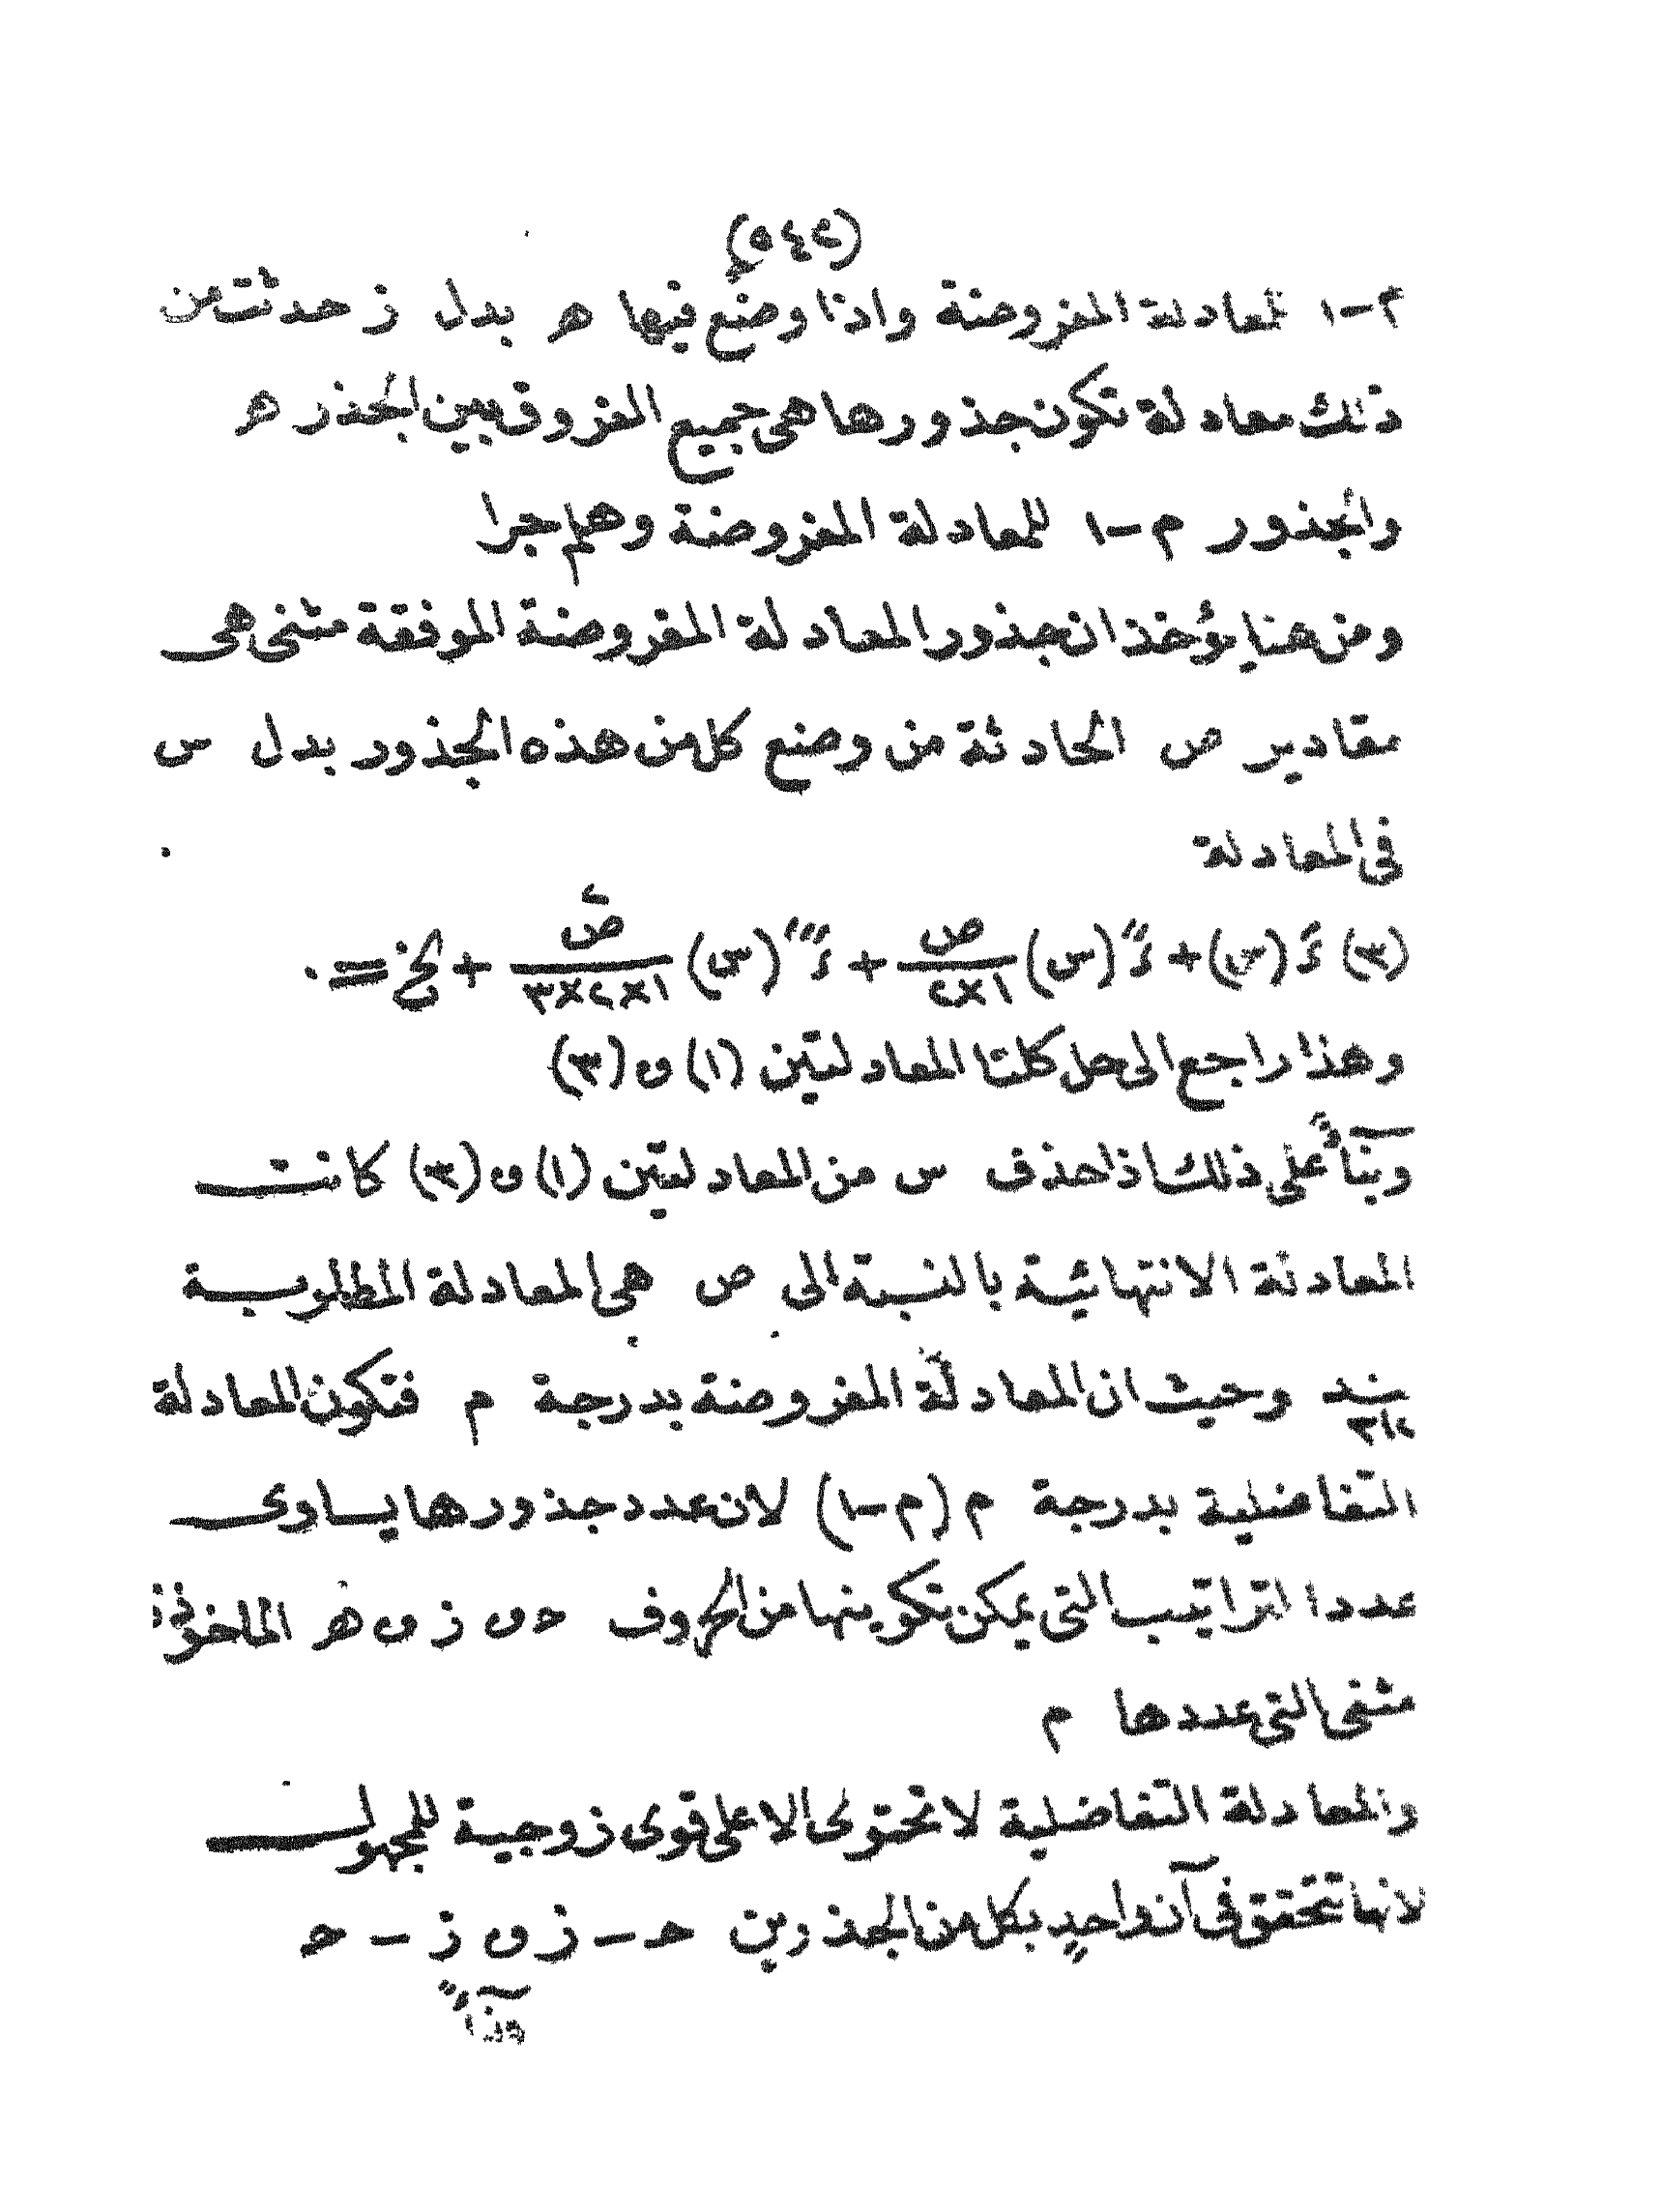 (٥٤٢)
م-١ لمعادلة المفروضة واذا وضع فيها ﻫ بدل ز حدثت من
ذلك معادلة تكون جذورها هى جميع الفروق بين الجذر ﻫ
والجذور م-١ للمعادلة المفروضة وهلم جرا
ومن هنا يؤخذ ان جذور المعادلة المفروضة الموفقة مثنى هى
مقادير ص الحادثة من وضع كل من هذه الجذور بدل س
فى المعادلة
(٣) دَ (س) + دً (س) ص/١×٢ + د‴ (س) ص٢/١×٢×٣ + لخ = ٠
وهذا راجع الى حل كلتا المعادلتين (١) و (٣)
وبنآءً على ذلك اذا حذف س من المعادلتين (١) و (٣) كانت
المعادلة الانتهائية بالنسبة الى ص هى المعادلة المطلوبة
بند ٣١٢ وحيث ان المعادلة المفروضة بدرجة م فتكون المعادلة
التفاضلية بدرجة م (م-١) لان عدد جذورها يساوى
عدد التراتيب التى يمكن تكوينها من الحروف ح و ز و ﻫ الماخوذة
مثنى التى عددها م
والمعادلة التفاضلية لا تحتوى الا على قوى زوجية للمجهول
لانها تتحقق فى آن واحدٍ بكل من الجذرين ح - ز و ز - ح
وبنآءً